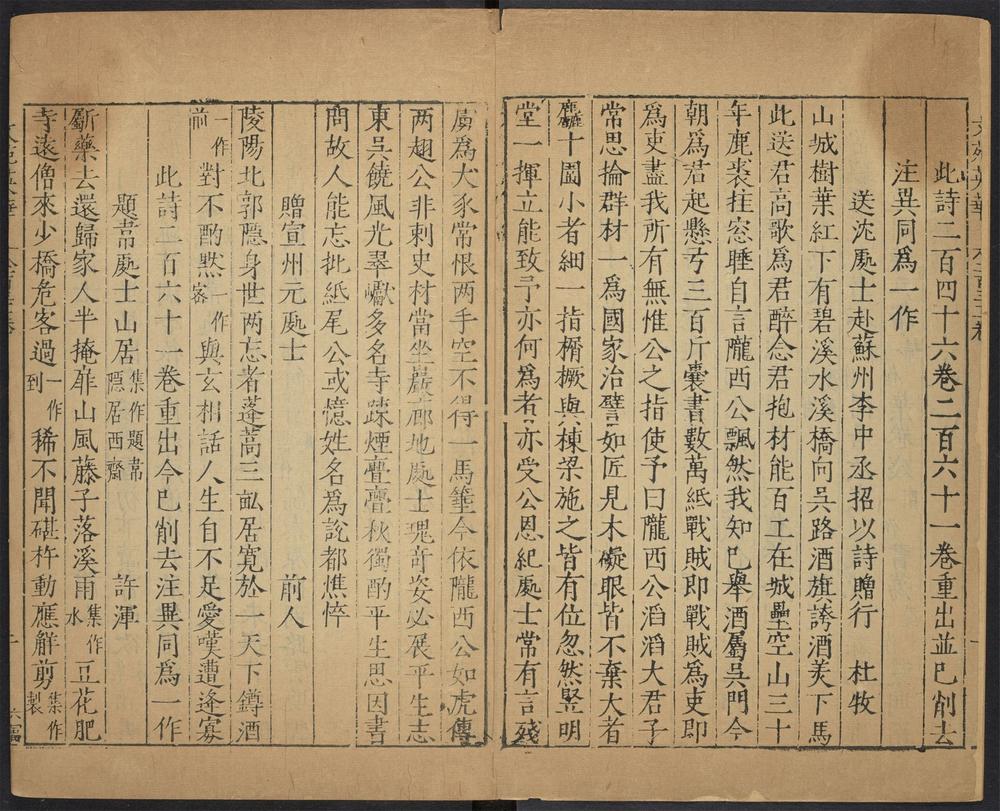 此詩二百四十六卷二百六十一卷重出並已削去
注異同爲一作
送沈處士赴蘇州李中丞招以詩贈行 杜牧
山城樹葉紅下有碧溪水溪橋向吳路酒旗誇酒美下馬
此送君高歌爲君醉念君抱材能百工在城壘空山三十
年鹿裘挂窓睡自言隴西公飄然我知已舉酒屬吳門今
朝爲君起懸弓三百斤囊書數萬紙戰賊即戰賊爲吏即
爲吏盡我所有無惟公之指使予曰隴西公滔滔大君子
常思掄群材一爲國家治譬如匠見木礙眼皆不棄大者
麤十圍小者細一指榍橛與棟梁施之皆有位忽然竪明
堂一揮立能致予亦何爲者亦受公恩紀處士常有言殘
虜爲犬豕常恨两手空不得一馬箠今依隴西公如虎傅
两翅公非刺史材當坐巖廊地處士瑰竒姿必展平生志
東吳饒風光翠巘多名寺疎煙亹亹秋獨酌平生思因書
問故人能忘批紙尾公或憶姓名爲說都憔悴
贈宣州元處士 前人
陵陽北郭隱身世两忘者蓬蒿三畝居寛於一天下罇酒
一作前對不酌黙一作客與玄相話人生自不足愛嘆遭逢寡
此詩二百六十一卷重出今巳削去注異同爲一作
題韋處士山居集作題韋隱居西齋 許渾
斸藥去還歸家人半掩扉山風藤子落溪雨集作水豆花肥
寺遠僧來少橋危客過一作到稀不聞碪杵動應觧剪集作製